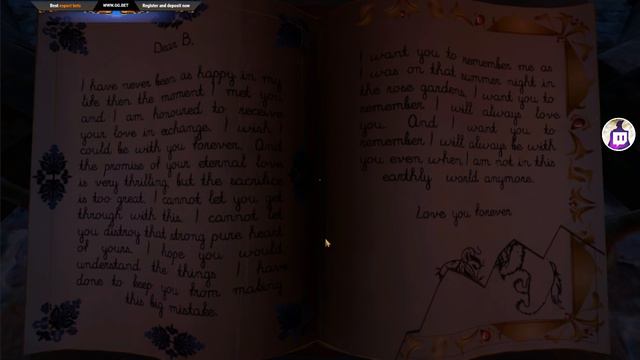 Best esport bets WWW.GG.BET Register and deposit now
Dear B,
I have never been as happy in my
life then the moment I met you
and I am honoured to receive
your love in exchange. I wish I
could be with you forever. And
the promise of your eternal love
is very thrilling, but the sacrifice
is too great. I cannot let you get
through with this. I cannot let
you distroy that strong pure heart
of yours. I hope you would
understand the things I have
done to keep you from making
this big mistake.
I want you to remember me as
I was on that summer night in
the rose gardens, I want you to
remember I will always love
you. And I want you to
remember I will always be with
you even when I am not in this
earthly world anymore.
Love you forever